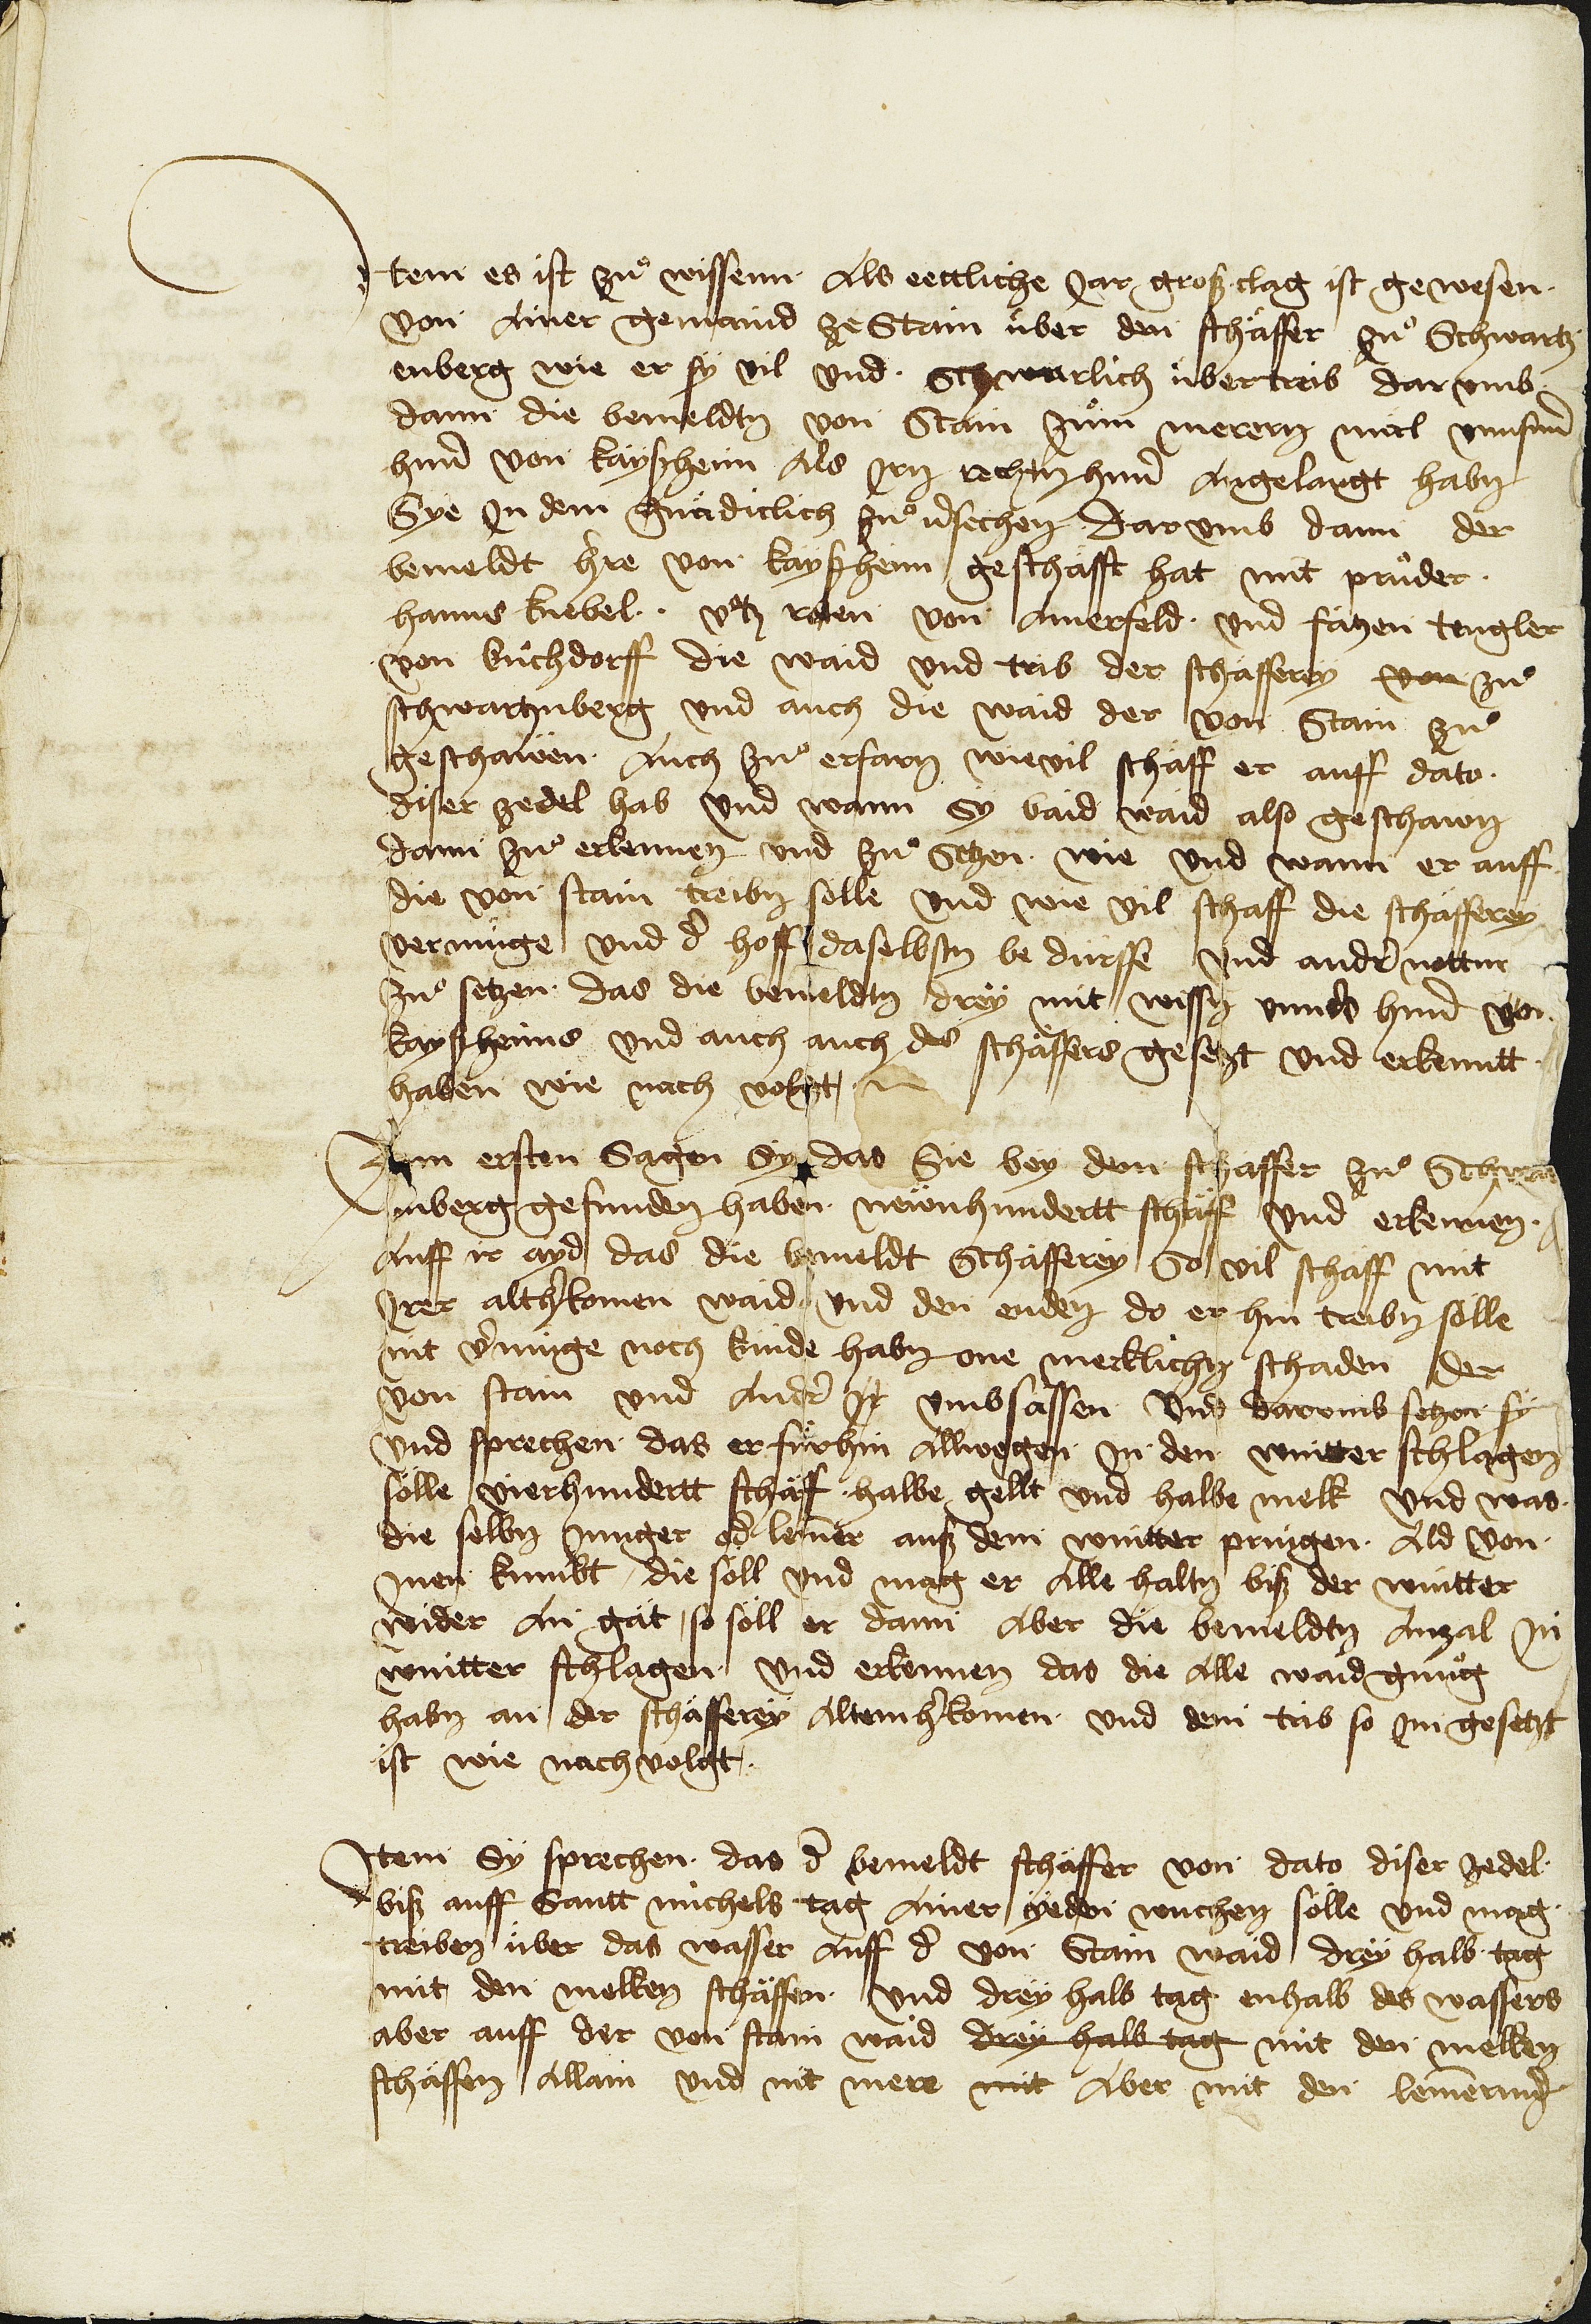 Item es ist zuͦ wissenn Als eettliche Jar groß clag ist gewesen
von Ainer gemaind ze Stain über den schäffer zuͦ Schwartz
enberg wie er sÿ vil vnd Schwarlich übertreib darvmb
dann die bemeldtn von Stain zum merern mal
hern von kayßheim Als Jrn rechtn hern Angelangt habn
Sye Jn dem gnädiclich zuͦ darvmb dann der
bemeldt h̄re von kayßheim geschäfft hat mit pruͦder
hanns knebel vtz roten von Amerfeld vnd fätzen tengler
von buͦchdorff die waid vnd trib der schäfferey von zuͦ
schwartznberg vnd auch die waid der von Stain zuͦ
geschawen Auch zuͦ erfarn wievil schäff er auff dato
diser zedel hab vnd wann Sy baid waid also geschawn
dann zuͦ erkennen vnd zuͦ Setzen wie vnd wann er auff
die von stain treibn sölle vnd wie vil schaff die schäfferey
vermüge vnd d̄ hoff daselbstn bedürffe vnd andr̄ nottur
zuͦ setzen das die bemeldtn drey mit wissn vnnsers hern von
kayßheims vnd auch auch des schäffers gesetzt vnd erkenntt
haben wie nach volgt
Zum ersten Sagen Sy das Sie bey dem schaffer zuͦ Schwar
nberg gefunden haben neẅnhundertt schäff vnd erkennen
Auff ir ayd das die bemeldt Schäfferey So vil schäff mit
Jrer alth̄komen waid vnd den enden do er hin treibn sölle
nit v̄müge noch künde habn one mercklichn schaden der
von stain vnd Andr̄ Jr vmbsässen vnd darvmb setzen sÿ
vnd sprechen das er fürhin Allwegen Jn den wintter schlagen
sölle vierhundertt schäff halbe gellt vnd halbe melk vnd was
die selbn Junger od̄ lem̄er auß dem wintter pringen Ald von
Jnen kumbt die söll vnd mag er Alle haltn biß der wintter
wider An gät so söll er dann Aber die bemeldtn Anzal Jn
wintter schlagen vnd erkennen das die Alle waid gnuͦg
habn an der schäfferey Altemh̄komen vnd dem trib so Jm gesetzt
ist wie nachvolgt
Item Sÿ sprechen das d̄ bemeldt schäffer von dato diser zedel
biß auff Santt michels tag Ainer yeden wuchen sölle vnd mag
treiben über das wasser Auff d̄ von Stain waid drey halb tag
mit den melken schäffen vnd drey halb tag enhalb des wassers
aber auff der von stain waid drey halb tag mit den melken
schäffen Allain vnd nit mere mit Aber mit den